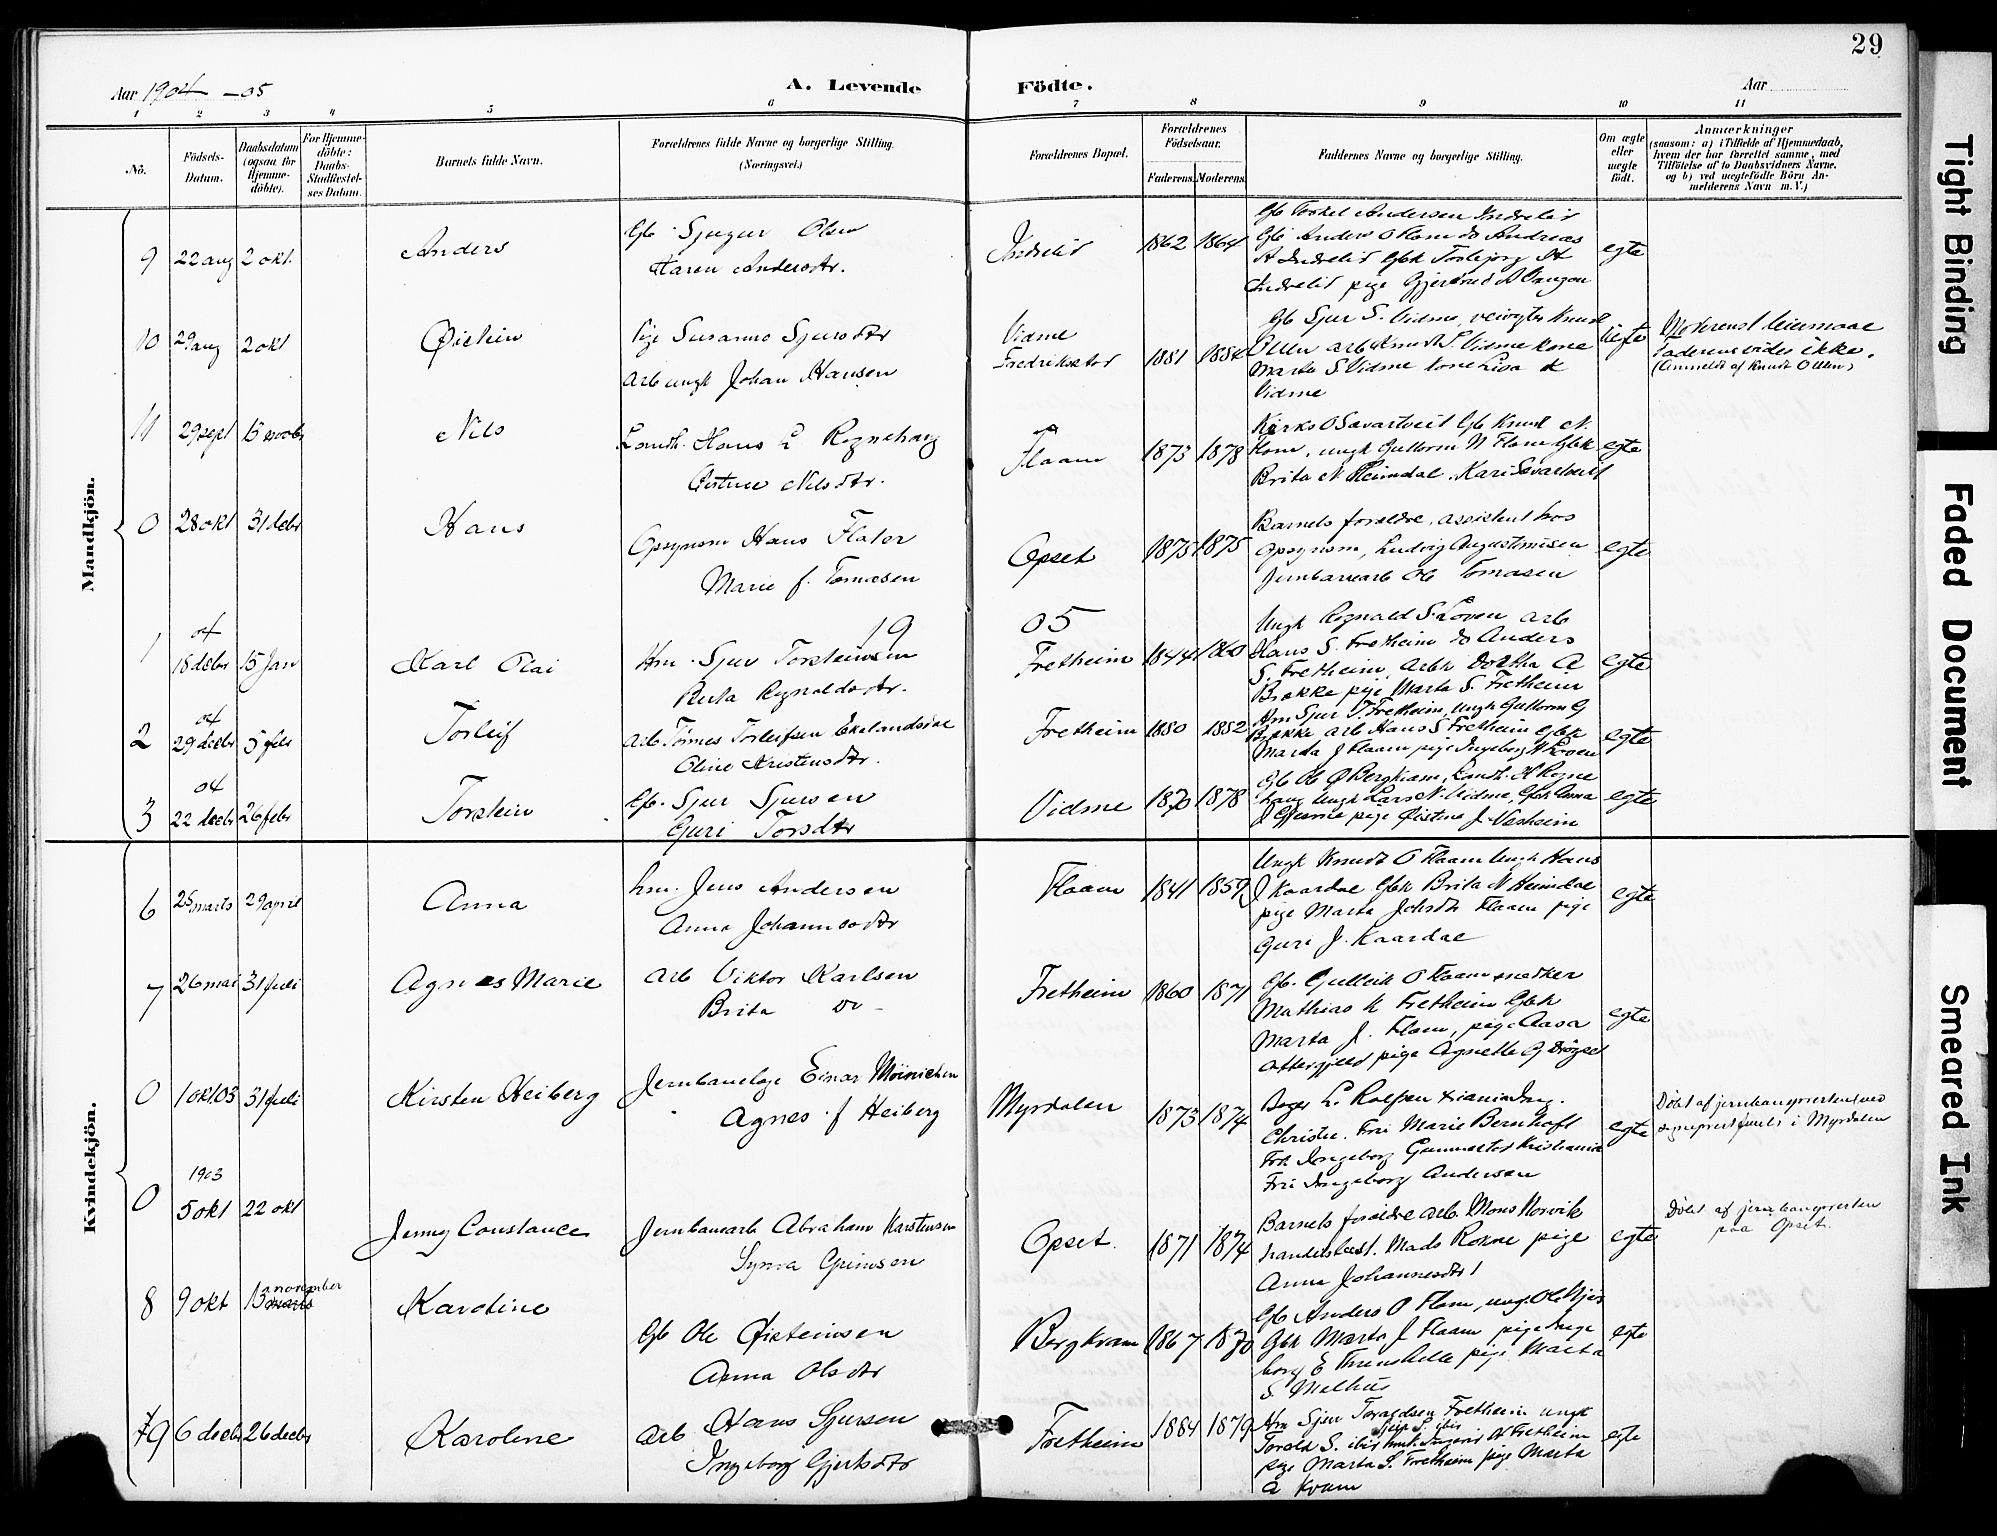 29
Aar 1904 -05
A. Levende Födte.
Aar
1 2 3 4 5 6 7 8 9 10 11
No.
Födsels-Datum.
Daabsdatum (ogsaa for Hjemme-döbte).
For Hjemme-döbte: Daabs-Stadfæstel-ses Datum.
Barnets fulde Navn.
Forældrenes fulde Navne og borgerlige Stilling. (Næringsvei.)
Forældrenes Bopæl.
Forældrenes Födselsaar.
Faderens. Moderens.
Faddernes Navne og borgerlige Stilling.
Om ægte eller uægte födt.
Anmærkninger
(saasom: a) i Tilfælde af Hjemmedaab, hvem der har forrettet samme, med Tilföielse af to Daabsvidners Navne, og b) ved uægtefödte Börn Anmelderens Navn m. V.)
Mandkjön.
9 22 aug 2 okt. Anders
Gb. Sjugur Olsen
Karen Andersdtr.
Indrelid 1862 1864
Gb Torkel Andersen Indrelid
Gb. Anders O Flam do Andreas
A Indrelid Gbk Torbjørg A
Indrelid pige Gjertrud A Vangen
egte
10 29 aug 2 okt Øistein
Pige Susanne Sjursdtr
Arb ungk Johan Hansen
Vidme
Fredrikstad 1881 1884
Gb Sjur S. Vidme, veivogter Knud
Ollen arb Knud S. Vidme kone
Marta S Vidme kone Lisa K
Vidme
uegte
Moderens 1 leiermaal
Faderens vides ikke.
(Anmeldt af Knud Ollen)
11 29 sept 13 novbr Nils
Landh. Hans L Rognehaug
Nilsdtr.
Flaam 1873 1878
O Savartveit Gb Knud N.
ungk Guttorm N Flam Gbk
Brita N Heimdal. Kari Savartveit
egte
0 28 okt 31 debr Hans
Opsynsm Hans Flator
Marie f. Tomasen
Opset 1875 1875
Barnets foreldre, assistent hos
opsynsm, Ludvig Augustinusen
Jernbanearb Ole Tomasen
egte
19 05
1 04
18 debr 15 Jan Karl Olai
Hm. Sjur Torsteinsen
Brita Rognaldsdtr.
Fretheim 1844 1860
Ungk Rognald S. Loven arb
Hans S. Fretheim do Anders
S. Fretheim, arbk Dortha A
Brekke pige Marta S. Fretheim
egte
2 04
29 decbr 5 feb Torleif
Arb Tønnes Torleifsen Ekelandsdal
Oline Kristensdtr.
Fretheim 1880 1882
Hm Sjur T Fretheim, ungk Guttorm G
Brekke arb Hans S Fretheim Gbk
Marta J Flaam pige Ingeborg A Loven
egte
3 04
22 decbr 26 febr Torstein
Gb. Sjur Sjursen
Guri Torsdtr
Vidme 1870 1878
Gb Ole Ø Bergkvam, Landh. H Rogne
haug Ungk Lars N. Vidme, Gbk Anna
pige Øistine J. Vesheim
egte
Kvindekjön.
6 25 marts 29 april Anna
hm. Jens Andersen
Anna Johannesdtr
Flaam 1841 1859
Ungk Knud O Flaam Ungk Hans
J Kaardal Gbk Brita N Heimdal
pige Marta Johsdtr Flaam pige
Guri J. Kaardal
egte
7 26 mai 31 juli Agnes Marie
Arb Viktor Karlsen
Brita do -
Fretheim 1860 1871
Gb. Gulleik O Flaam snedker
Mathias K Fretheim Gbk
Marta J. Flaam, pige Aasa
Ottergjeld pige Agnethe G
egte
0 1 okt. 03 31 juli Kirsten Heiberg
Jernbanelæge Einar Møinichen
Agnes f Heiberg
Myrdalen 1873 1874
L. Rolfsen
Christie. Frk Marie Bernhoft
Frk Ingeborg Gammeltoft Kristiania
Fru Ingeborg Andersen
egte
Døbt af jernbanepresten ved
sogneprest i Myrdalen
0 1903
5 okt 22 okt Jenny Constance
Jernbanearb Abraham Karstensen
Synva Grimsen
Opset. 1871 1874
Barnets foreldre arb. Mons Norvik
handelsbest. Mads Rokne pige
Anna Johannesdtr
egte
Døbt af jernbanepresten
paa Opset.
8 9 okt 13 november marts Karoline
Gb Ole Øisteinsen
Anna Olsdtr
Bergkvam 1867 1870
Gb Anders O Flam, ungk Ole
Gbk Marta J Flaam pige Inge
borg E pige Marta
S. Melhus
egte
9 6 decbr 26 decbr Karoline
Arb Hans Sjursen
Ingeborg Gjertsdtr
Fretheim 1884 1879
Hm Sjur Toraldsen Fretheim ungk
Torald S. ibid Fretheim
pige Marta S. Fretheim pige Marta
A Kvam
egte
Tight Binding
Faded Document
Smeared Ink